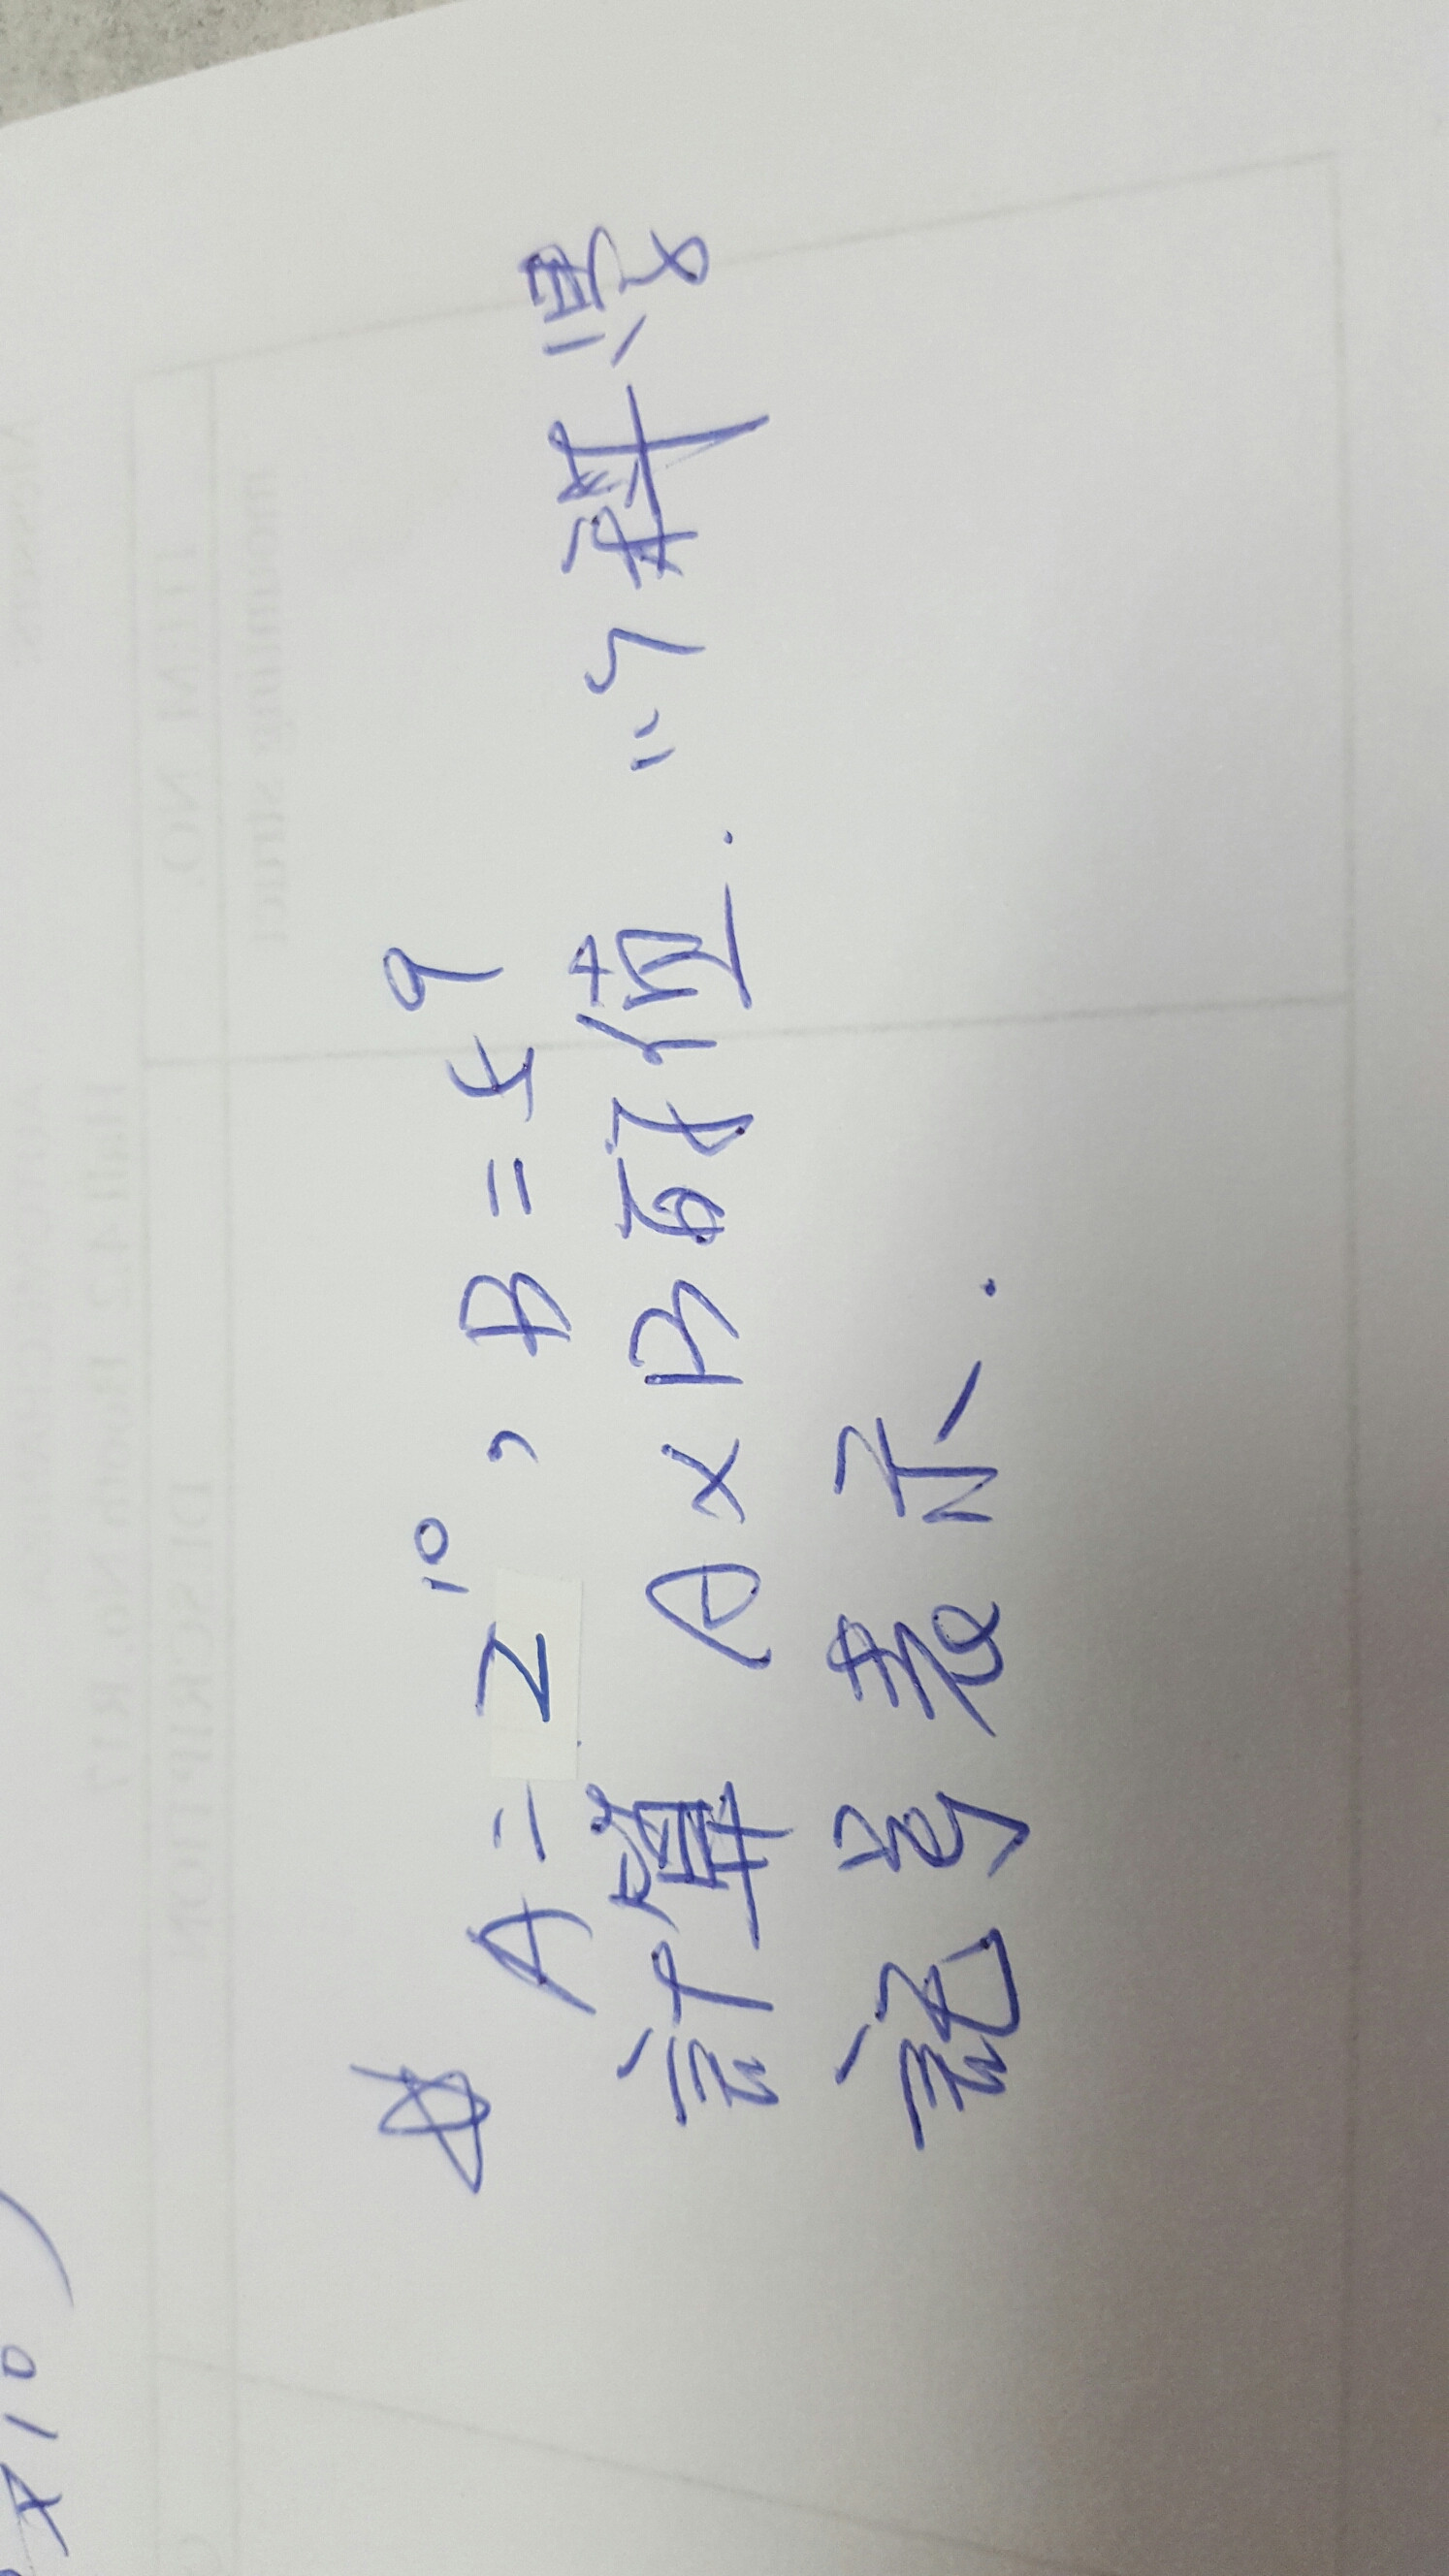 ☆ A = 2¹⁰, B = 4⁹
計算 A × B 的值. 以科學
記号表示.